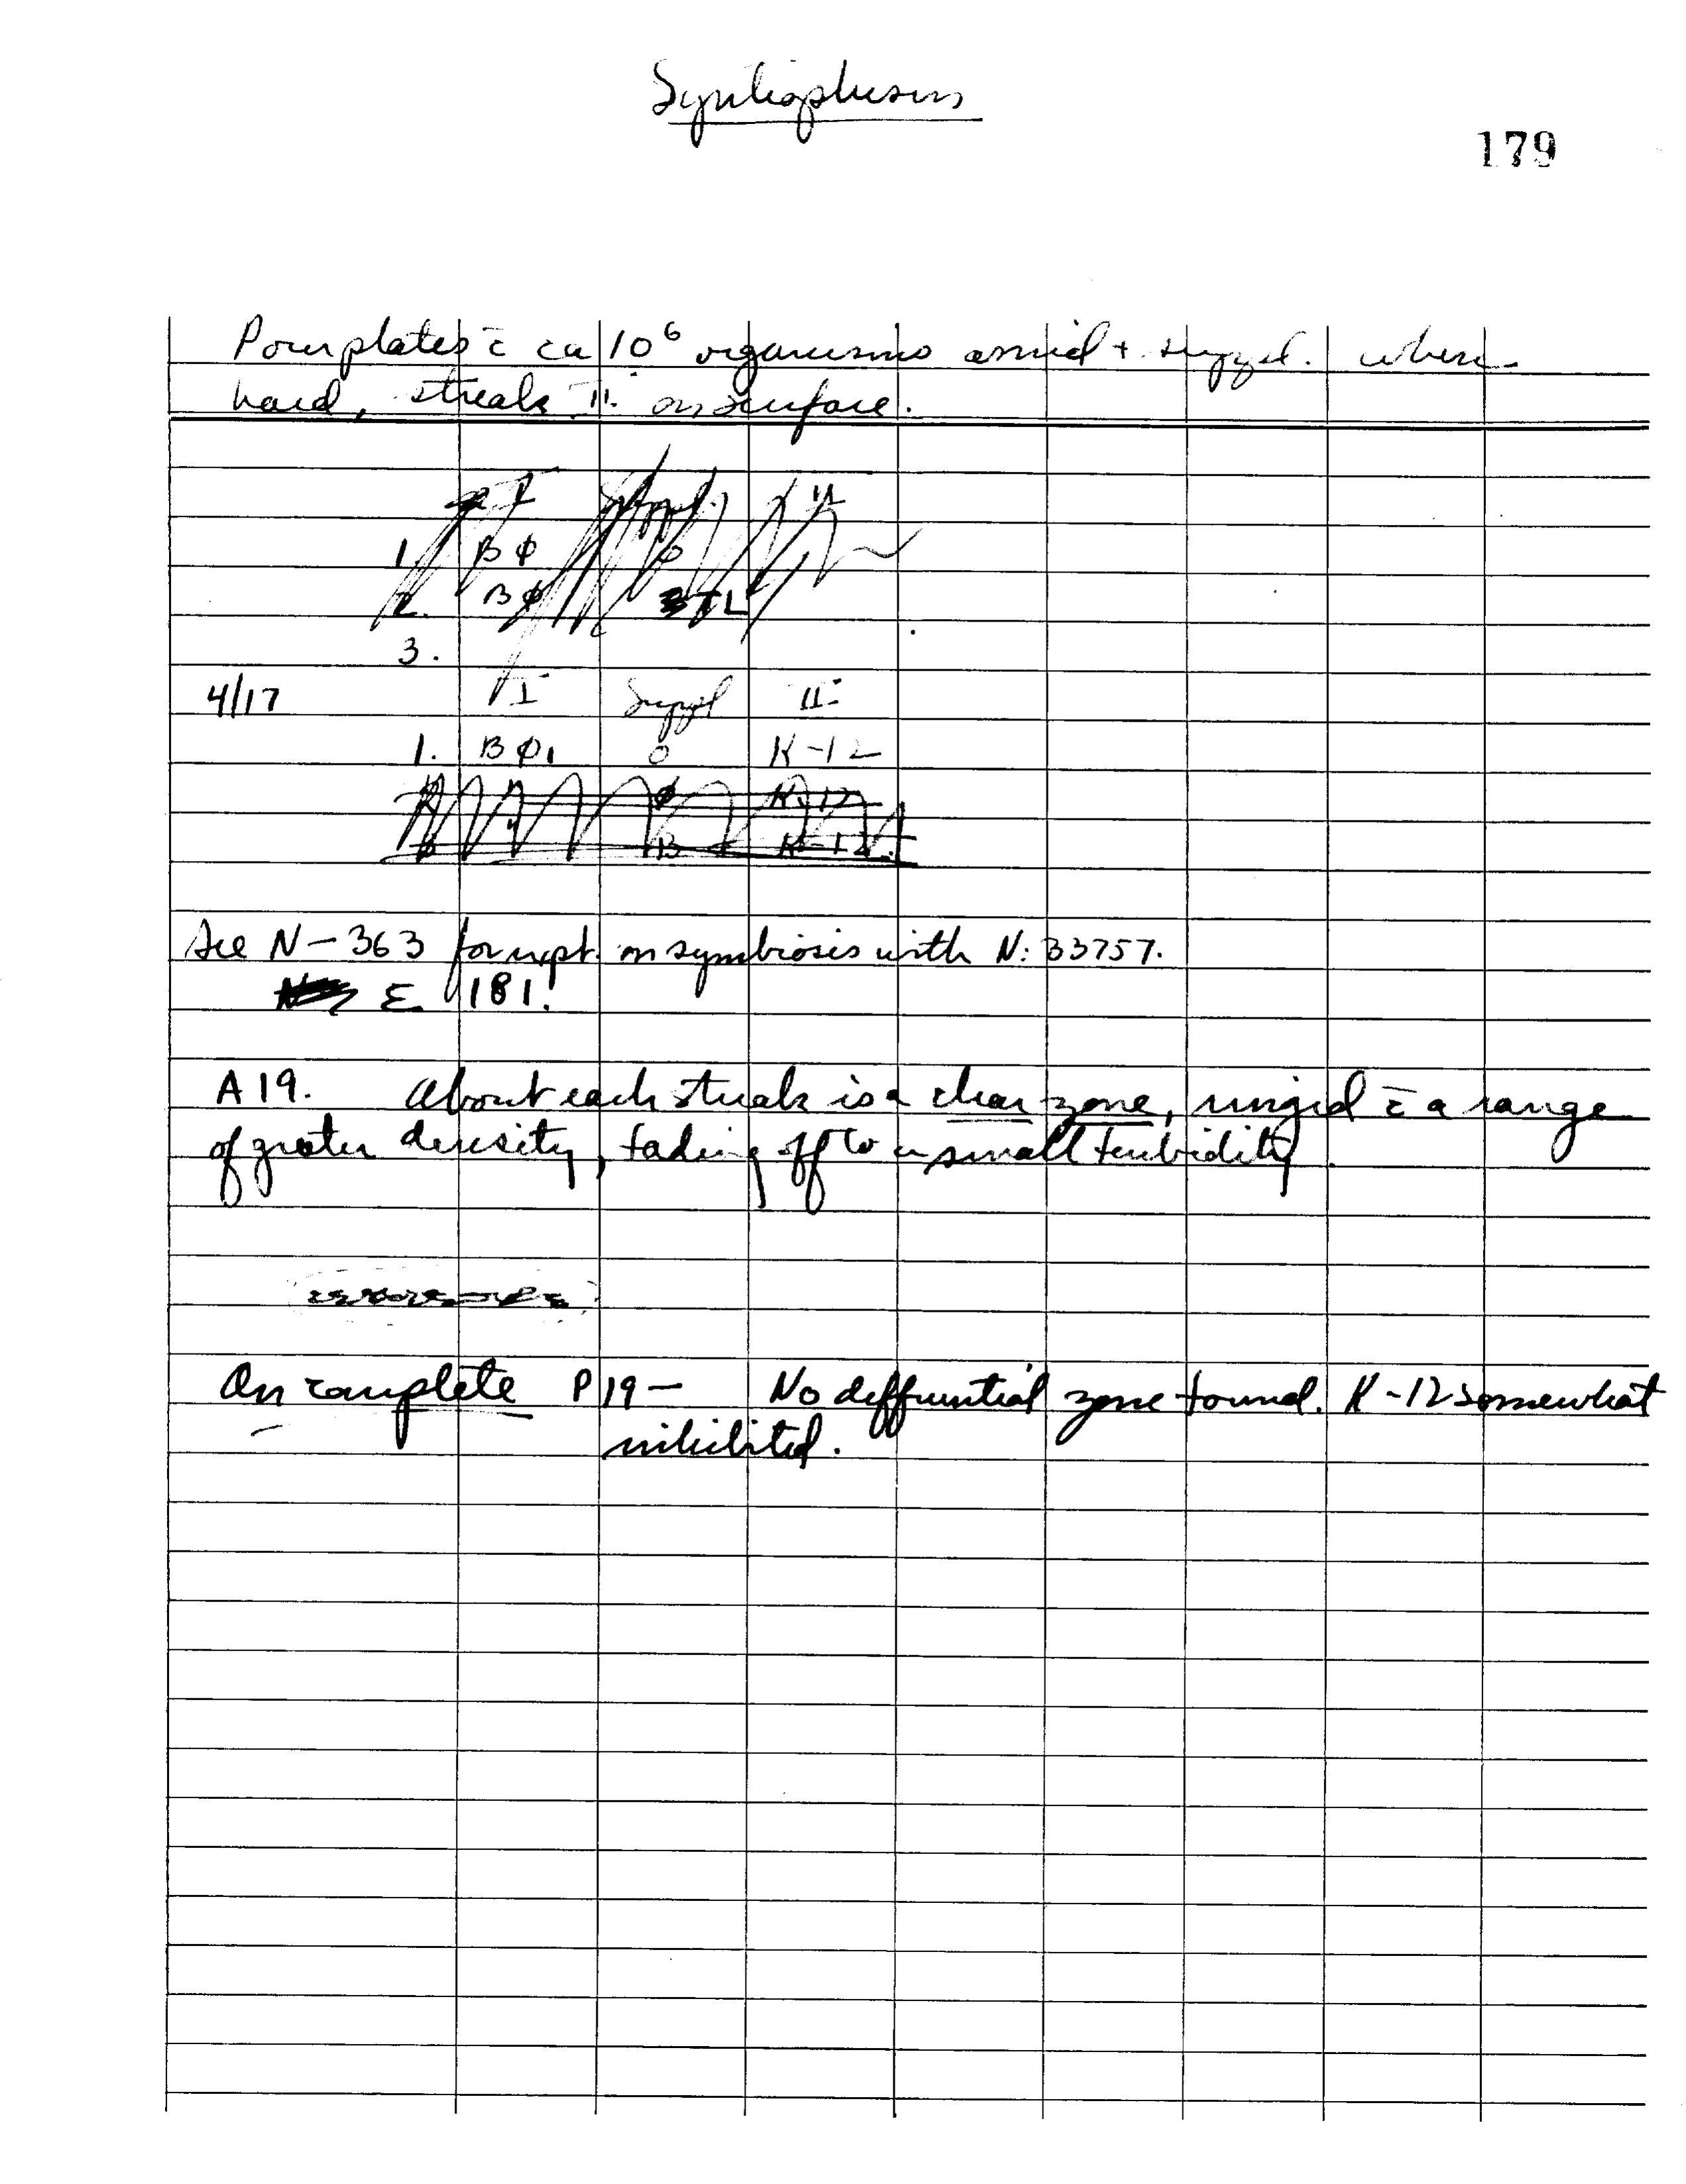 Syntrophism
179
Pour plates c̄ ca 10⁶ organisms and + suppl. when
hard, streak II. on surface.
I Suppl. II
1. B φ 0
2. B φ TL
3.
4/17 I Suppl II
1. B φ1 0 K-12
K-12
B K-12
See N-363 for expt. on symbiosis with N: 33757.
E 181!
A19. About each streak is a clear zone, ringed c̄ a range
of greater density, fading off to a small turbidity.
On complete P19 - No differential zone found. K-12 somewhat
inhibited.